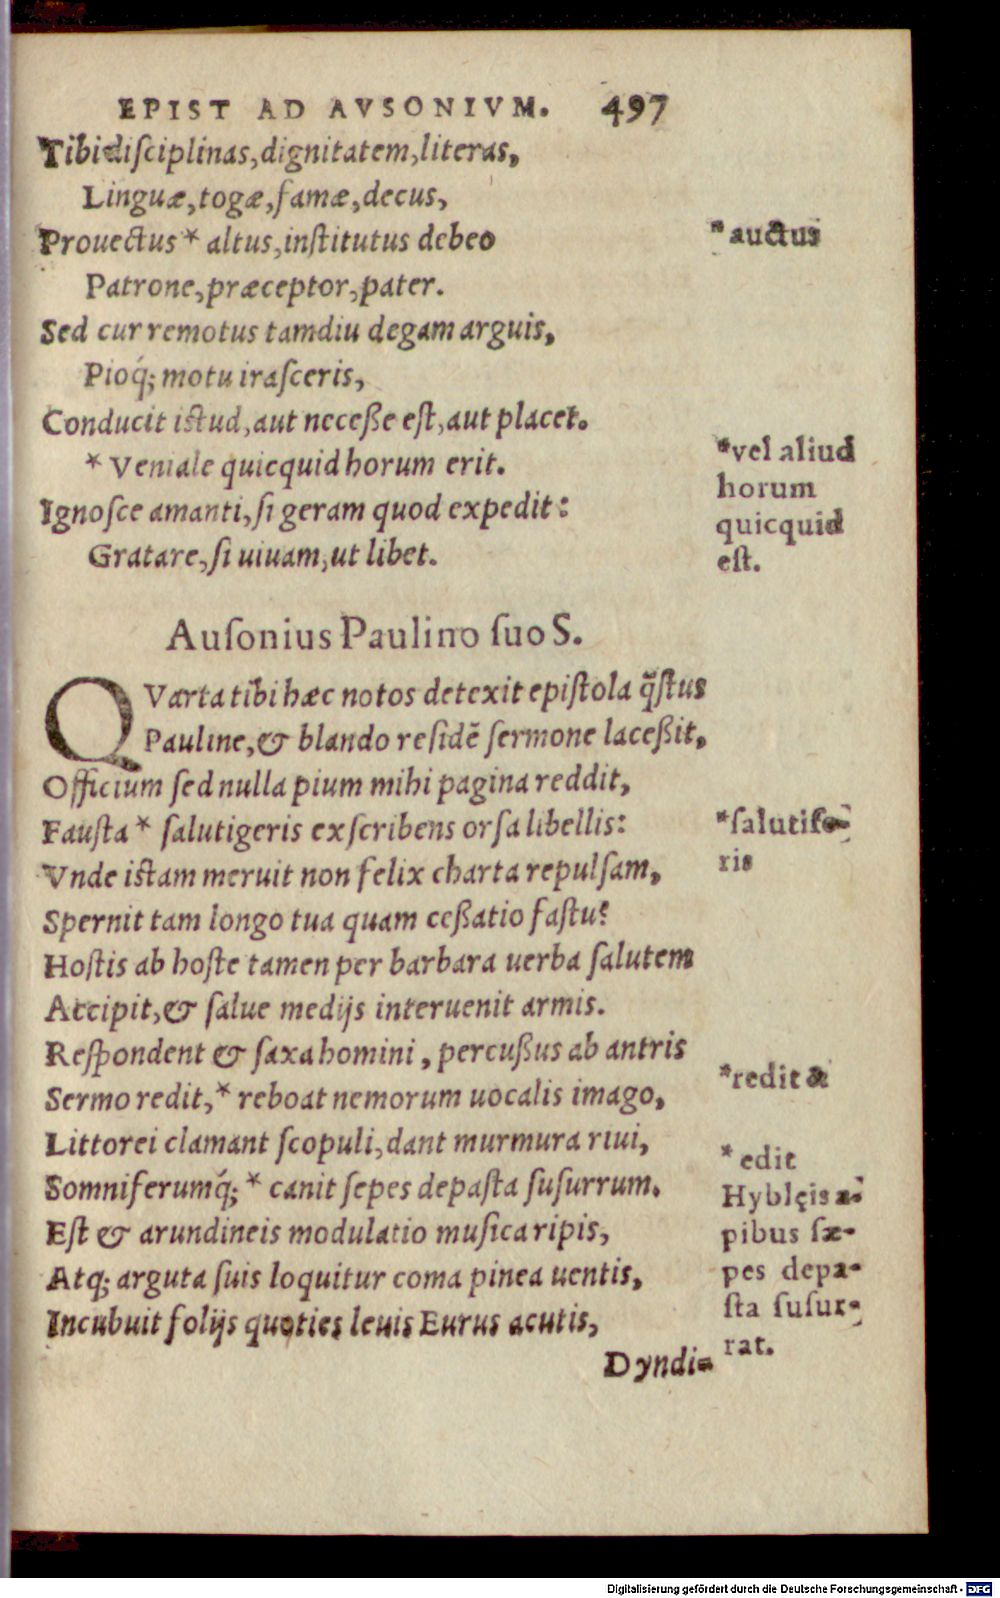 EPIST AD AVSONIVM. 497
Tibi diſciplinas, dignitatem, literas,
Linguæ, togæ, famæ, decus,
Prouectus * altus, inſtitutus debeo
*auctus
Patrone, præceptor, pater.
Sed cur remotus tamdiu degam arguis,
Pioq́; motu iraſceris,
Conducit iſtud, aut neceße eſt, aut placet.
* Veniale quicquid horum erit.
*vel aliud
horum
quicquid
eſt.
Ignoſce amanti, ſi geram quod expedit:
Gratare, ſi uiuam, ut libet.
Auſonius Paulino ſuo S.
QVarta tibi hæc notos detexit epiſtola q̃ſtus
Pauline, & blando reſidẽ ſermone laceßit,
Officium ſed nulla pium mihi pagina reddit,
Fauſta * ſalutigeris exſcribens orſa libellis:
*ſalutife-
ris
Vnde iſtam meruit non felix charta repulſam,
Spernit tam longo tua quam ceßatio faſtu?
Hoſtis ab hoſte tamen per barbara uerba ſalutem
Accipit, & ſalue medijs interuenit armis.
Reſpondent & ſaxa homini, percußus ab antris
Sermo redit, * reboat nemorum uocalis imago,
*redit &
Littorei clamant ſcopuli, dant murmura riui,
Somniferumq́; * canit ſepes depaſta ſuſurrum.
* edit
Hyblęis a-
pibus ſæ-
pes depa-
ſta ſuſur-
rat.
Eſt & arundineis modulatio muſica ripis,
Atq; arguta ſuis loquitur coma pinea uentis,
Incubuit folijs quoties leuis Eurus acutis,
Dyndi-
Digitalisierung gefördert durch die Deutsche Forschungsgemeinschaft - DFG